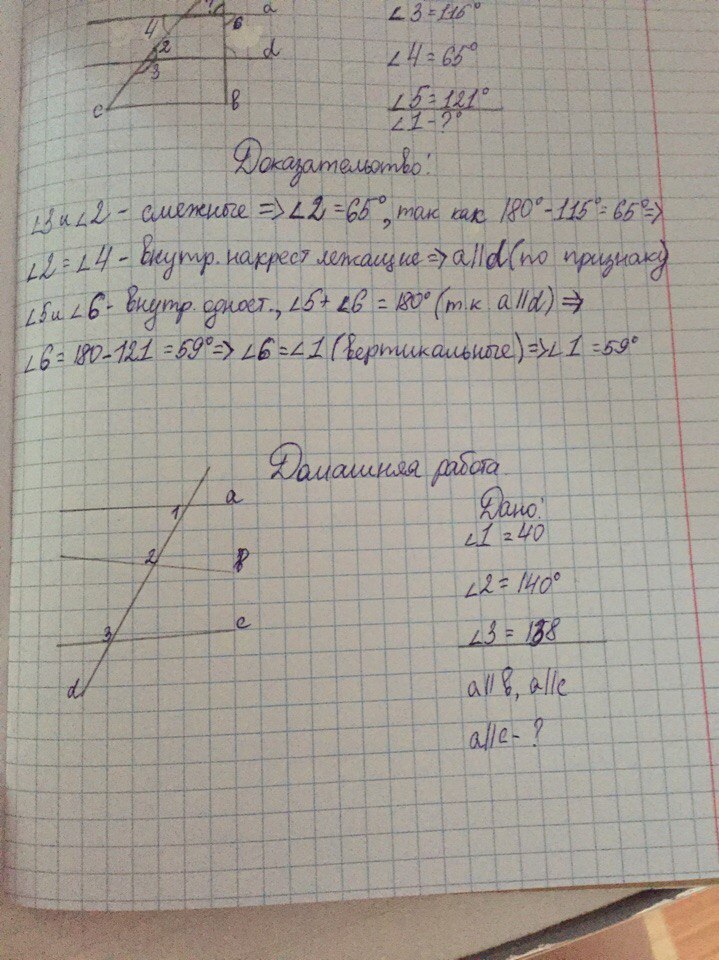 a
4
6
2
d
3
c
B
∠3 = 115°
∠4 = 65°
∠5 = 121°
∠1 - ?°
Доказательство:
∠3 и ∠2 - смежные => ∠2 = 65°, так как 180° - 115° = 65° =>
∠2 = ∠4 - внутр. накрест лежащие => a || d (по признаку)
∠5 и ∠6 - внутр. одност., ∠5 + ∠6 = 180° (т.к a || d) =>
∠6 = 180 - 121 = 59° => ∠6 = ∠1 (вертикальные) => ∠1 = 59°
Домашняя работа.
1
a
2
3
c
d
Дано:
∠1 = 40
∠2 = 140°
∠3 = 138
a || в, a || c
a || c - ?